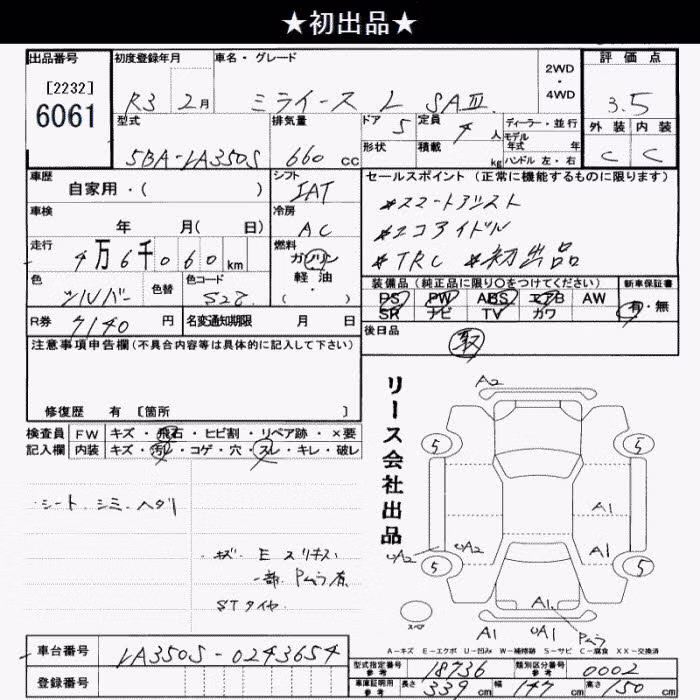 ★初出品★
出品番号 初度登録年月 車名・グレード 2WD・4WD 評価点
[2232]
6061
R3 2月 ミライース L SAⅢ 3.5
型式 排気量 ドア 5 定員 4人 ディーラー・並行 外装 内装
モデル年式 年
5BA-LA350S 660cc 形状 積載 kg ハンドル 左・右 C C
車歴 シフト セールスポイント(正常に機能するものに限ります)
自家用・( ) IAT
#スマートアシスト
車検 冷房
年 月( 日) AC #エコアイドル
走行 燃料 #TRC #初出品
4万6千060km ガソリン
軽油
色 色替 色コード ・( ) 装備品(純正品に限り○をつけてください) 新車保証書
シルバー S28 PS PW ABS エアB AW 有・無
SR ナビ TV カワ
R券 7140円 名変通知期限 月 日 後日品
取
注意事項申告欄(不具合内容等は具体的に記入して下さい)
修復歴 有 [箇所 ]
検査員 FW キズ・飛石・ヒビ割・リペア跡・×要
記入欄 内装 キズ・汚レ・コゲ・穴・スレ・キレ・破レ
・シート.シミ.ヘタリ
キズ. E スリキズ
一部. Pムラ有
STタイヤ.
リース会社出品
A2
5 5
A1
A2 A2 A1
5 5
スペア
A1
A1 A1 Pムラ
A-キズ E-エクボ U-凹み W-補修跡 S-サビ C-腐食 XX-交換済
車台番号 LA350S-0243654
型式指定番号 参考 18736 類別区分番号 参考 0002
登録番号 車庫証明用 参考 長さ 339cm 幅 147cm 高さ 150cm